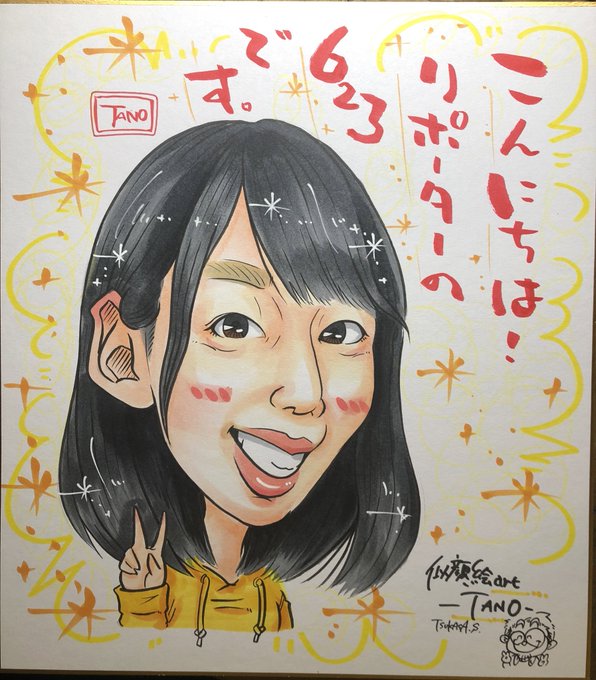 こんにちは!
リポーターの
623
です。
TANO
似顔絵art
-TANO-
TSUKASA.S.